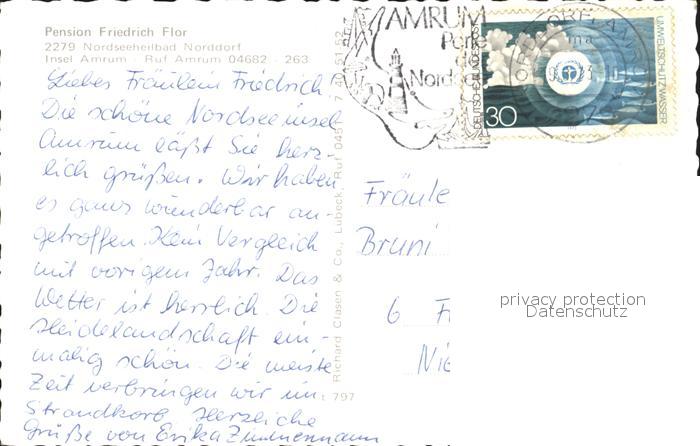 Pension Friedrich Flor
2279 Nordseeheilbad Norddorf
Insel Amrum - Ruf Amrum 04682 - 263
Liebes Fräulein Friedrich!
Die schöne Nordseeinsel
Amrum läßt Sie herz-
lich grüßen. Wir haben
es ganz wunderbar an-
getroffen. Kein Vergleich
mit vorigem Jahr. Das
Wetter ist herrlich. Die
Heidelandschaft ein-
malig schön. Die meiste
Zeit verbringen wir im
Strandkorb. Herzliche
Grüße von Erika Zimmermann
Richard Clasen & Co., Lübeck, Ruf 0451
t 797
AMRUM
Perle
Nord
DEUTSCHE BUNDESPOST
30
UMWELTSCHUTZ: WASSER
Fräule
Bruni
6 F
Nie
privacy protection
Datenschutz